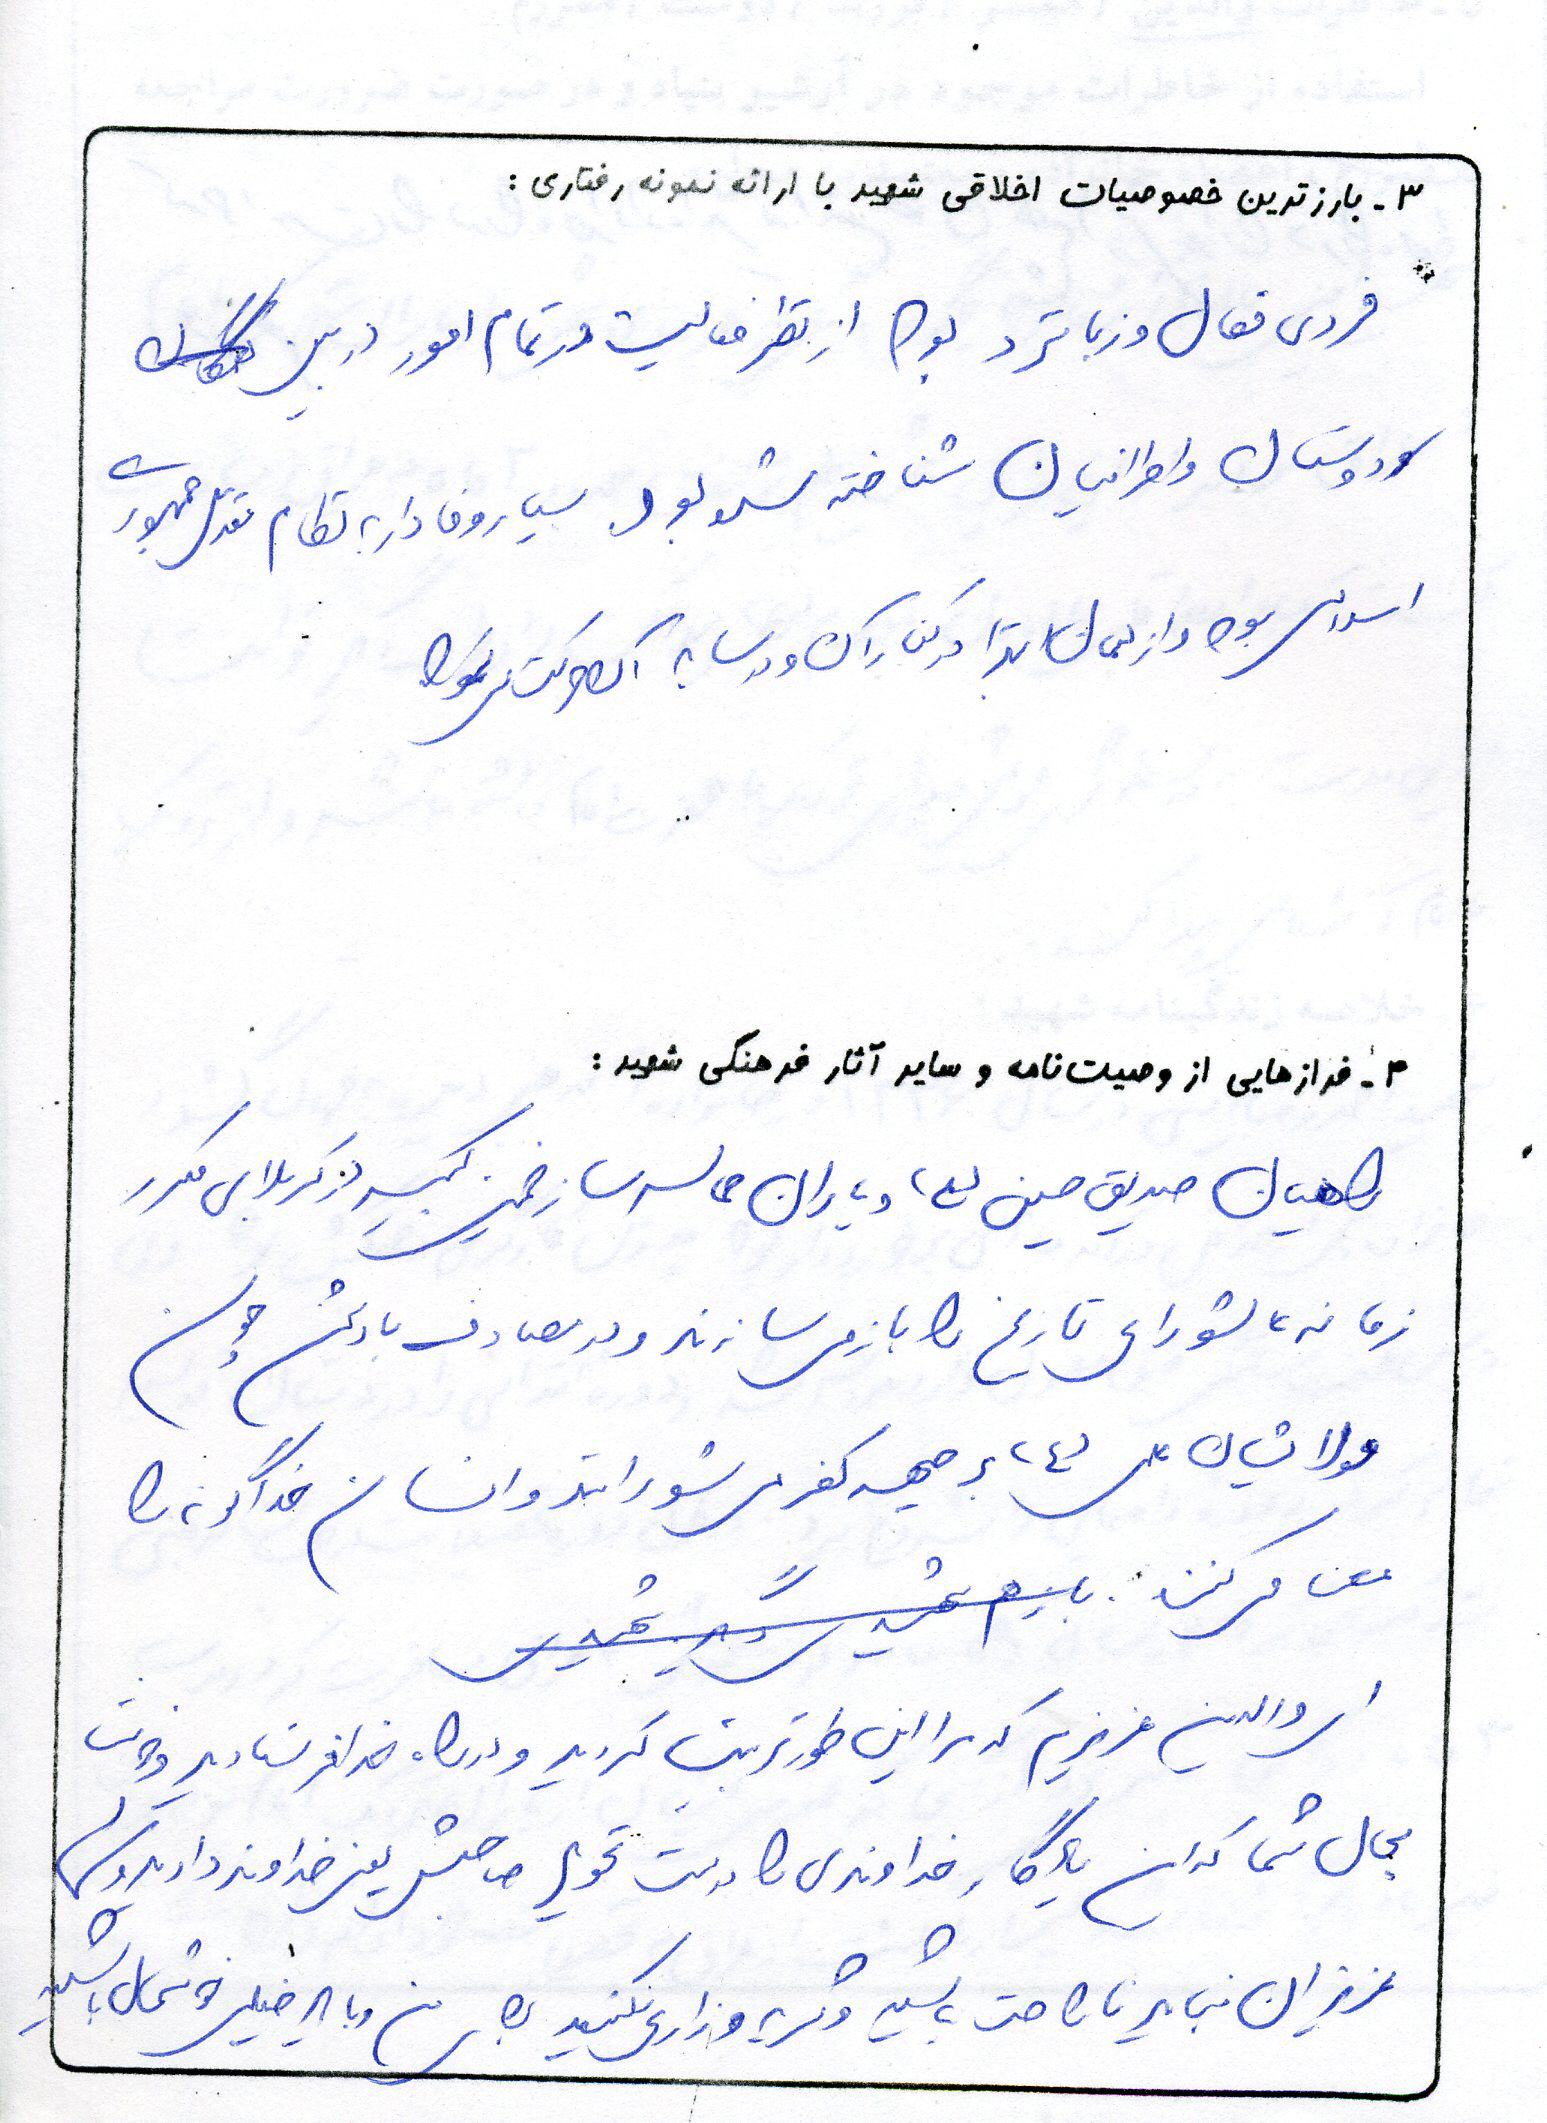 ۳- بارزترین خصوصیات اخلاقی شهید با ارائه نمونه رفتاری:
فردی فعال و زبانزد بود از نظر فعالیت در تمام امور در بین
دوستان و اطرافیان شناخته شده بود. بسیار وفادار به نظام مقدس جمهوری
اسلامی بود و از همان ابتدا در کنار آن و در سایه آن حرکت می‌نمود
۴- فرازهایی از وصیت‌نامه و سایر آثار فرهنگی شهید:
راهیان صدیق حسین (ع) و یاران حماسه ساز خمینی کبیر در کربلای مکرر
زمانه عاشورای تاریخ را باز می سازند و در مصاف با دشمن چون
مولایشان علی (ع) بر جبهه کفر می شورانند و انسان خداگونه را
معنا می کنند.
ای والدین عزیزم که مرا این طور تربیت کردید و در راه خدا فرستادید و خوشا
بحال شما که این یادگار خداوندی را درست تحویل صاحبش یعنی خداوند دادید و شما
عزیزان نباید ناراحت باشید و گریه و زاری نکنید برای من و باید خیلی خوشحال باشید